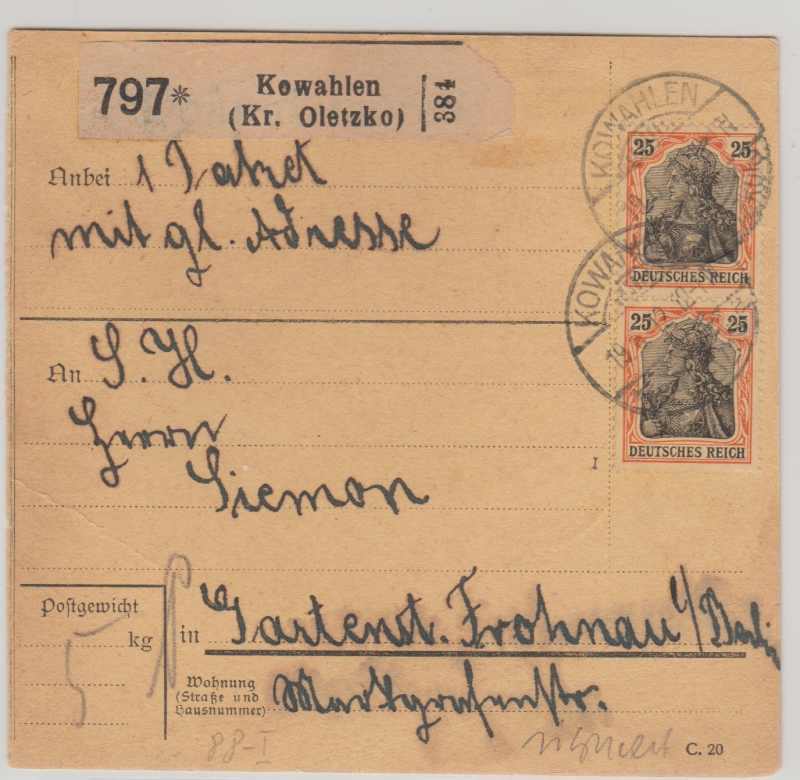 797* Kowahlen
(Kr. Oletzko) 384
KOWAHLEN
25 25
DEUTSCHES REICH
25 25
DEUTSCHES REICH
Anbei 1 Paket
mit gl. Adresse
An S. H.
Herrn
Siemon
I
Postgewicht
5 kg
in Gartenst. Frohnau b/Berlin
Wohnung
(Straße und
Hausnummer)
Markgrafenstr.
88-I
C. 20